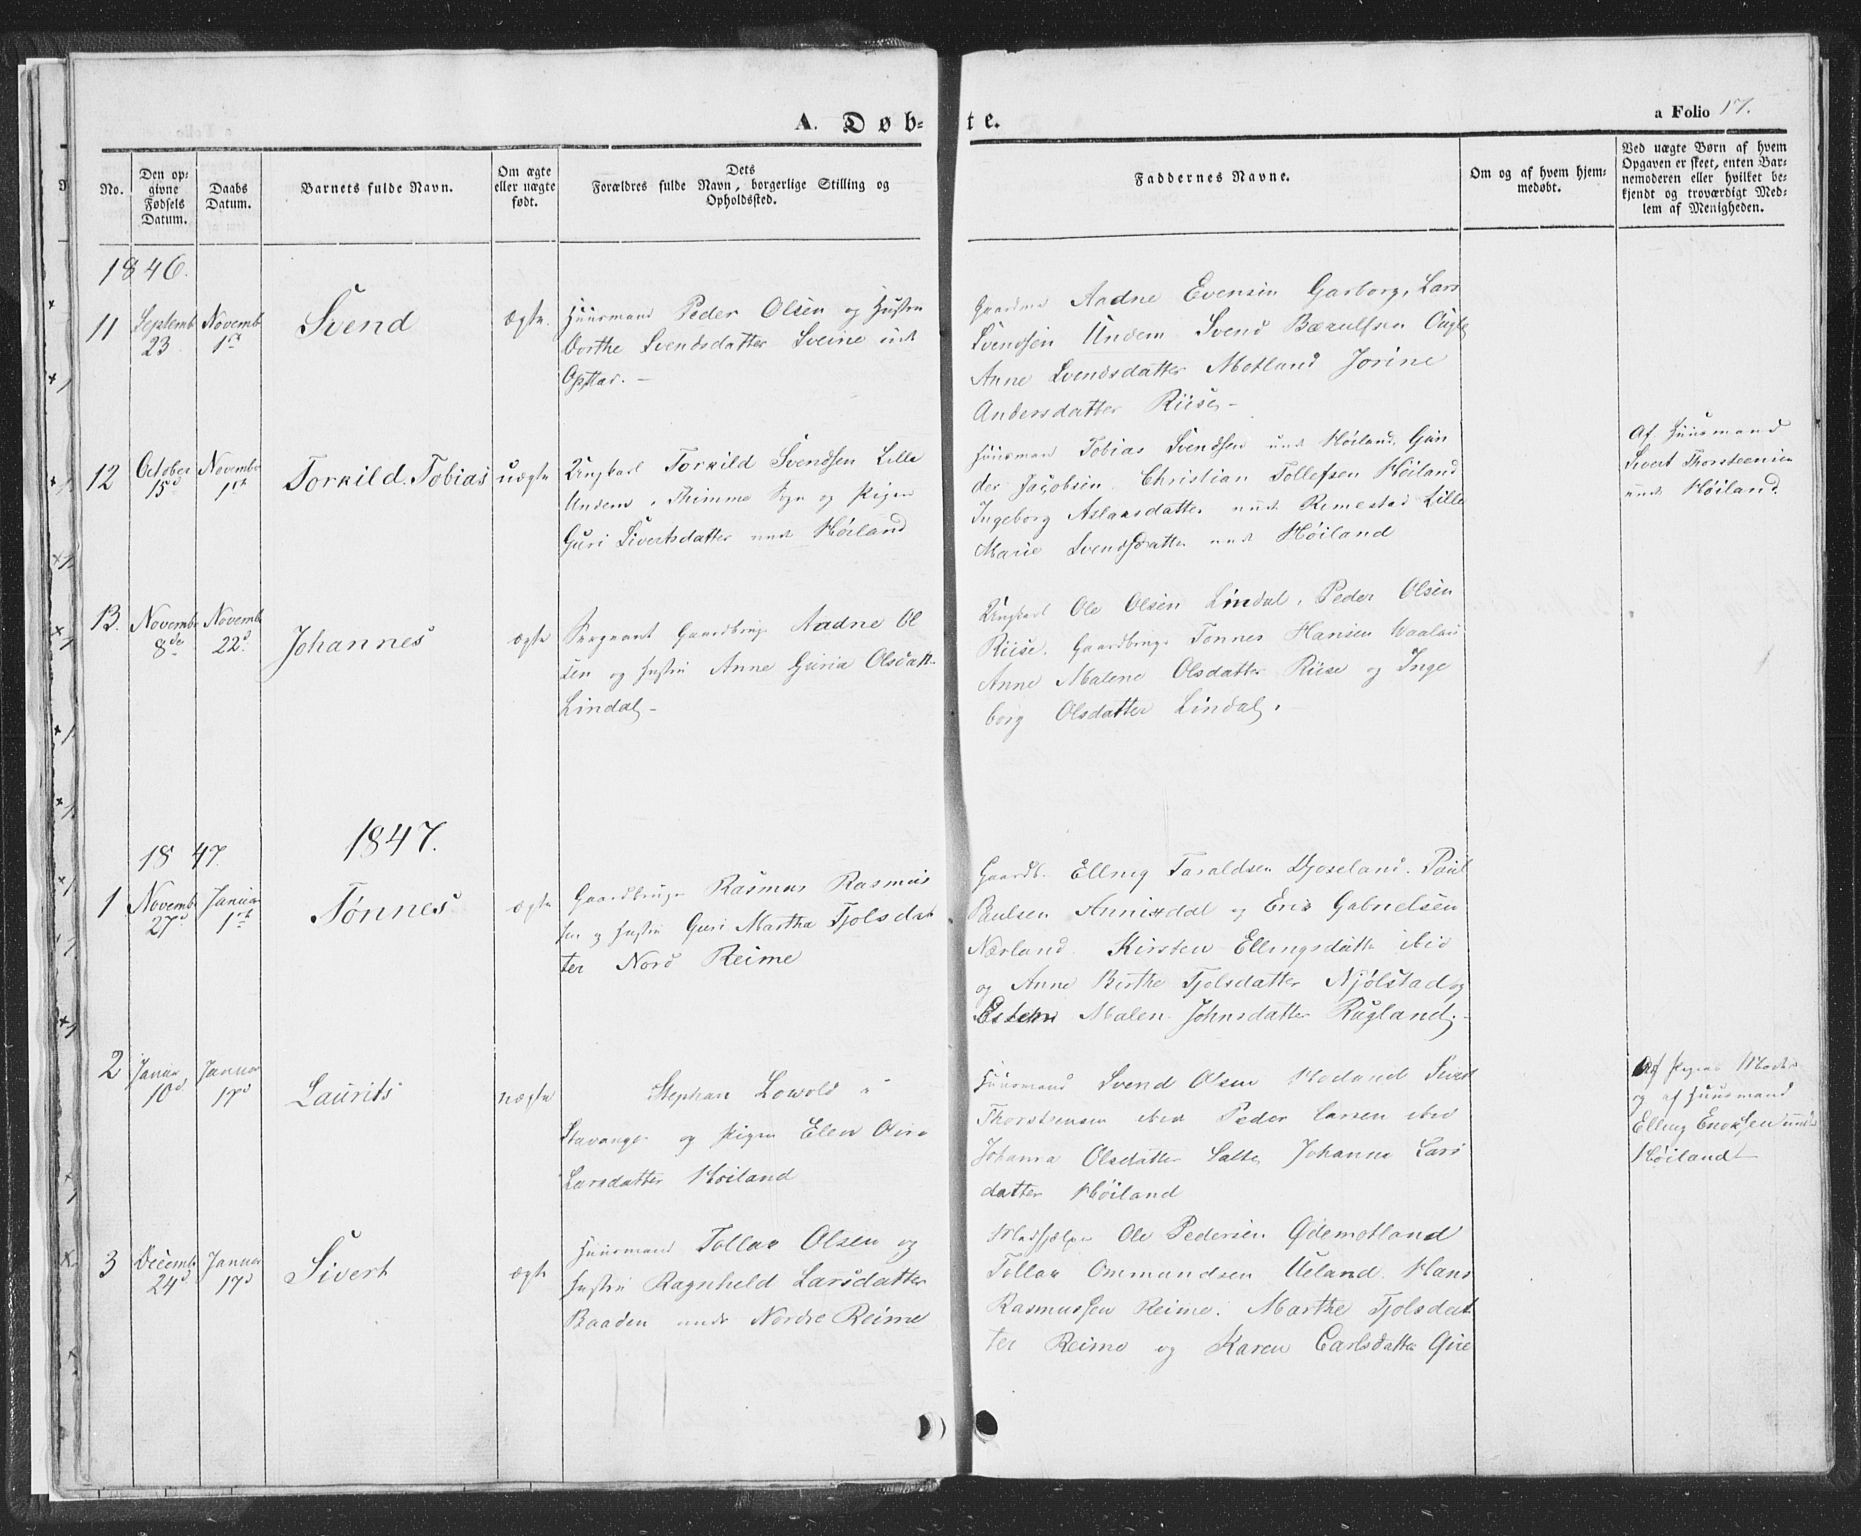 A. Døb-
te.
a Folio 17.
No.
Den op-
givne
Fødsels
Datum.
Daabs
Datum.
Barnets fulde Navn.
Om ægte
eller uægte
født.
Dets
Forældres fulde Navn, borgerlige Stilling og
Opholdssted.
Faddernes Navne.
Om og af hvem hjem-
medøbt.
Ved uægte Børn af hvem
Opgaven er skeet, enten Bar-
nemoderen eller hvilket be-
kjendt og troværdigt Med-
lem af Menigheden.
1846.
11
Septemb
23
Novemb
1st
Svend
ægte.
Huusmand Peder Olsen og Hustru
Dorthe Svendsdatter Sveine und
Opstad. -
Gaardmd Aadne Evensen Garborg, Lars
Svendsen Undem Svend Bærulfsen
Anne Svendsdatter Motland Jorine
Andersdatter Riise -
12
October
15d
Novemb
1st
Torkild Tobias
uægte
Ungkarl Torkild Svendsen Lille
Undem, Thimme Sogn og Pigen
Guri Sivertsdatter und Høiland
Huusman Tobias Svendsen und Høiland. Gun
der Jacobsen. Christian Tollefsen Høiland
Ingeborg Aslaksdatter und Rimestad Lille
Marie Svendsdatter und Høiland
Af Huusmand
Sivert Thorsteensen
und Høiland.
13.
Novemb
8de
Novemb
22d
Johannes
ægte
Sergeant Gaardbruge Aadne Ol
sen og Hustru Anne Guria Olsdatt
Lindal -
Ungkarl Ole Olsen Lindal, Peder Olsen
Riise. Gaardbruge Tønnes Hansen
Anne Malene Olsdatter Riise og Inge
borg Olsdatter Lindal. -
1847.
1847.
1
Novemb
27d
Januar
1st
Tønnes
ægte
Gaardbruge Rasmus Rasmus
sen og Hustru Guri Martha Tjolsdat
ter Nord Reime
Gaardb. Elling Taraldsen Djoseland. Poul
Paulsen Anniksdal og Eric Gabrielsen
Nærland. Kirsten Ellingsdatte ibid
og Anne Birthe Tjolsdatter Njølstad og
Malen Johnsdatter Rugland. -
2
Januar
10d
Januar
17d
Laurits
uægte
Stephan Lowold i
Stavanger og Pigen Elen
Larsdatter Høiland
Huusmand Svend Olsen Sivert
Thorstensen ibid Peder Larsen ibid
Johanna Olsdatter Salte, Johanne Lars
datter Høiland
Af Pigens Moder
og af Huusmand
Elling Ericksen und
Høiland
3
Decemb
24d
Januar
17d
Sivert
ægte
Huusmand Tollak Olsen og
Hustru Ragnheld Larsdatter
Baaden under Nordre Reime
Medhjælper Ole Pedersen Ødemotland
Tollak Ommundsen Ueland. Hans
Rasmussen Reime. Marthe Tjolsdat
ter Reime og Karen Carlsdatter